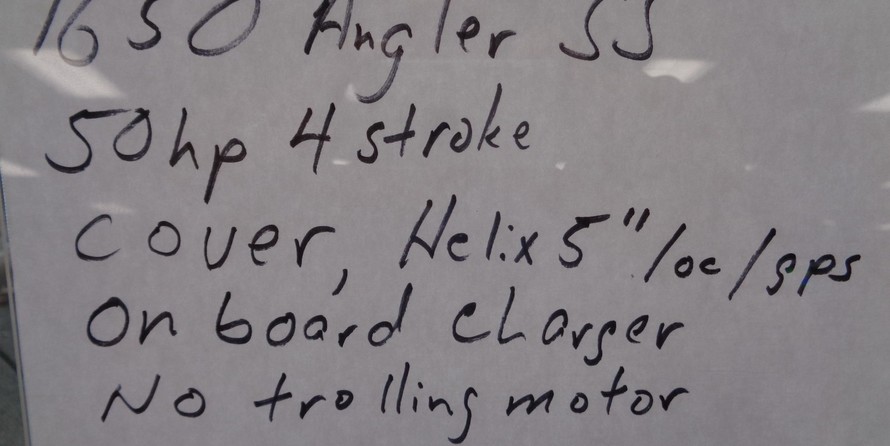 1650 Angler SS
50hp 4 stroke
cover, Helix 5"/loc/gps
On board charger
No trolling motor